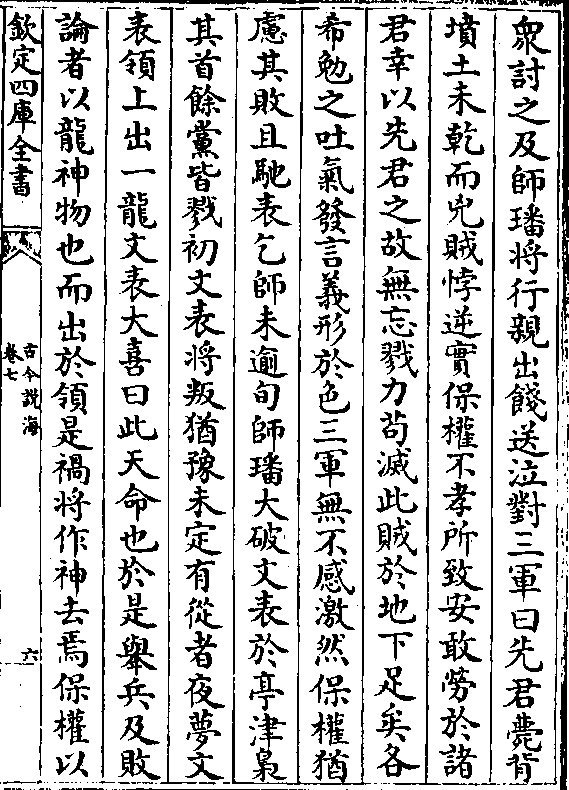 衆討之及師璠将行親出餞送泣對三軍曰先君薨背
墳土未乾而兇賊悖逆實保權不孝所致安敢勞於諸
君幸以先君之故無忘戮力茍滅此賊於地下足矣各
希勉之吐氣發言義形於色三軍無不感激然保權猶
慮其敗且馳表乞師未逾旬師璠大破文表於亭津梟
其首餘黨皆戮初文表将叛猶豫未定有從者夜夢文
表領上出一龍文表大喜曰此天命也於是舉兵及敗
論者以龍神物也而出於領是禍将作神去焉保權以
欽定四庫全書
古今說海
卷七
六